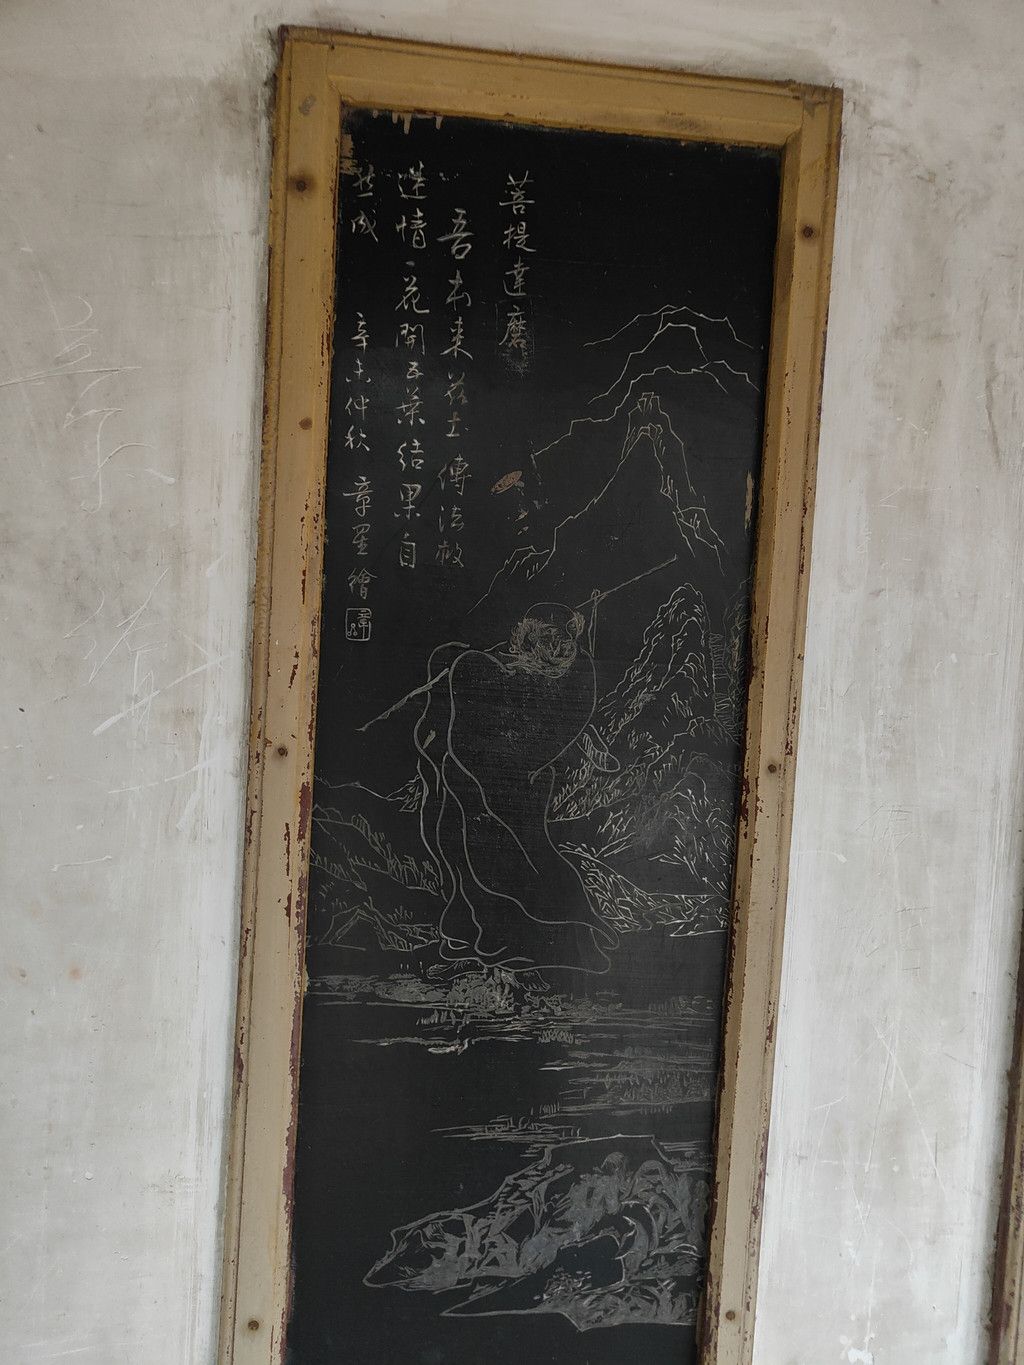 菩提達磨
吾本来茲土傳法救
迷情一花開五葉結果自
然成 辛未仲秋 章星繪